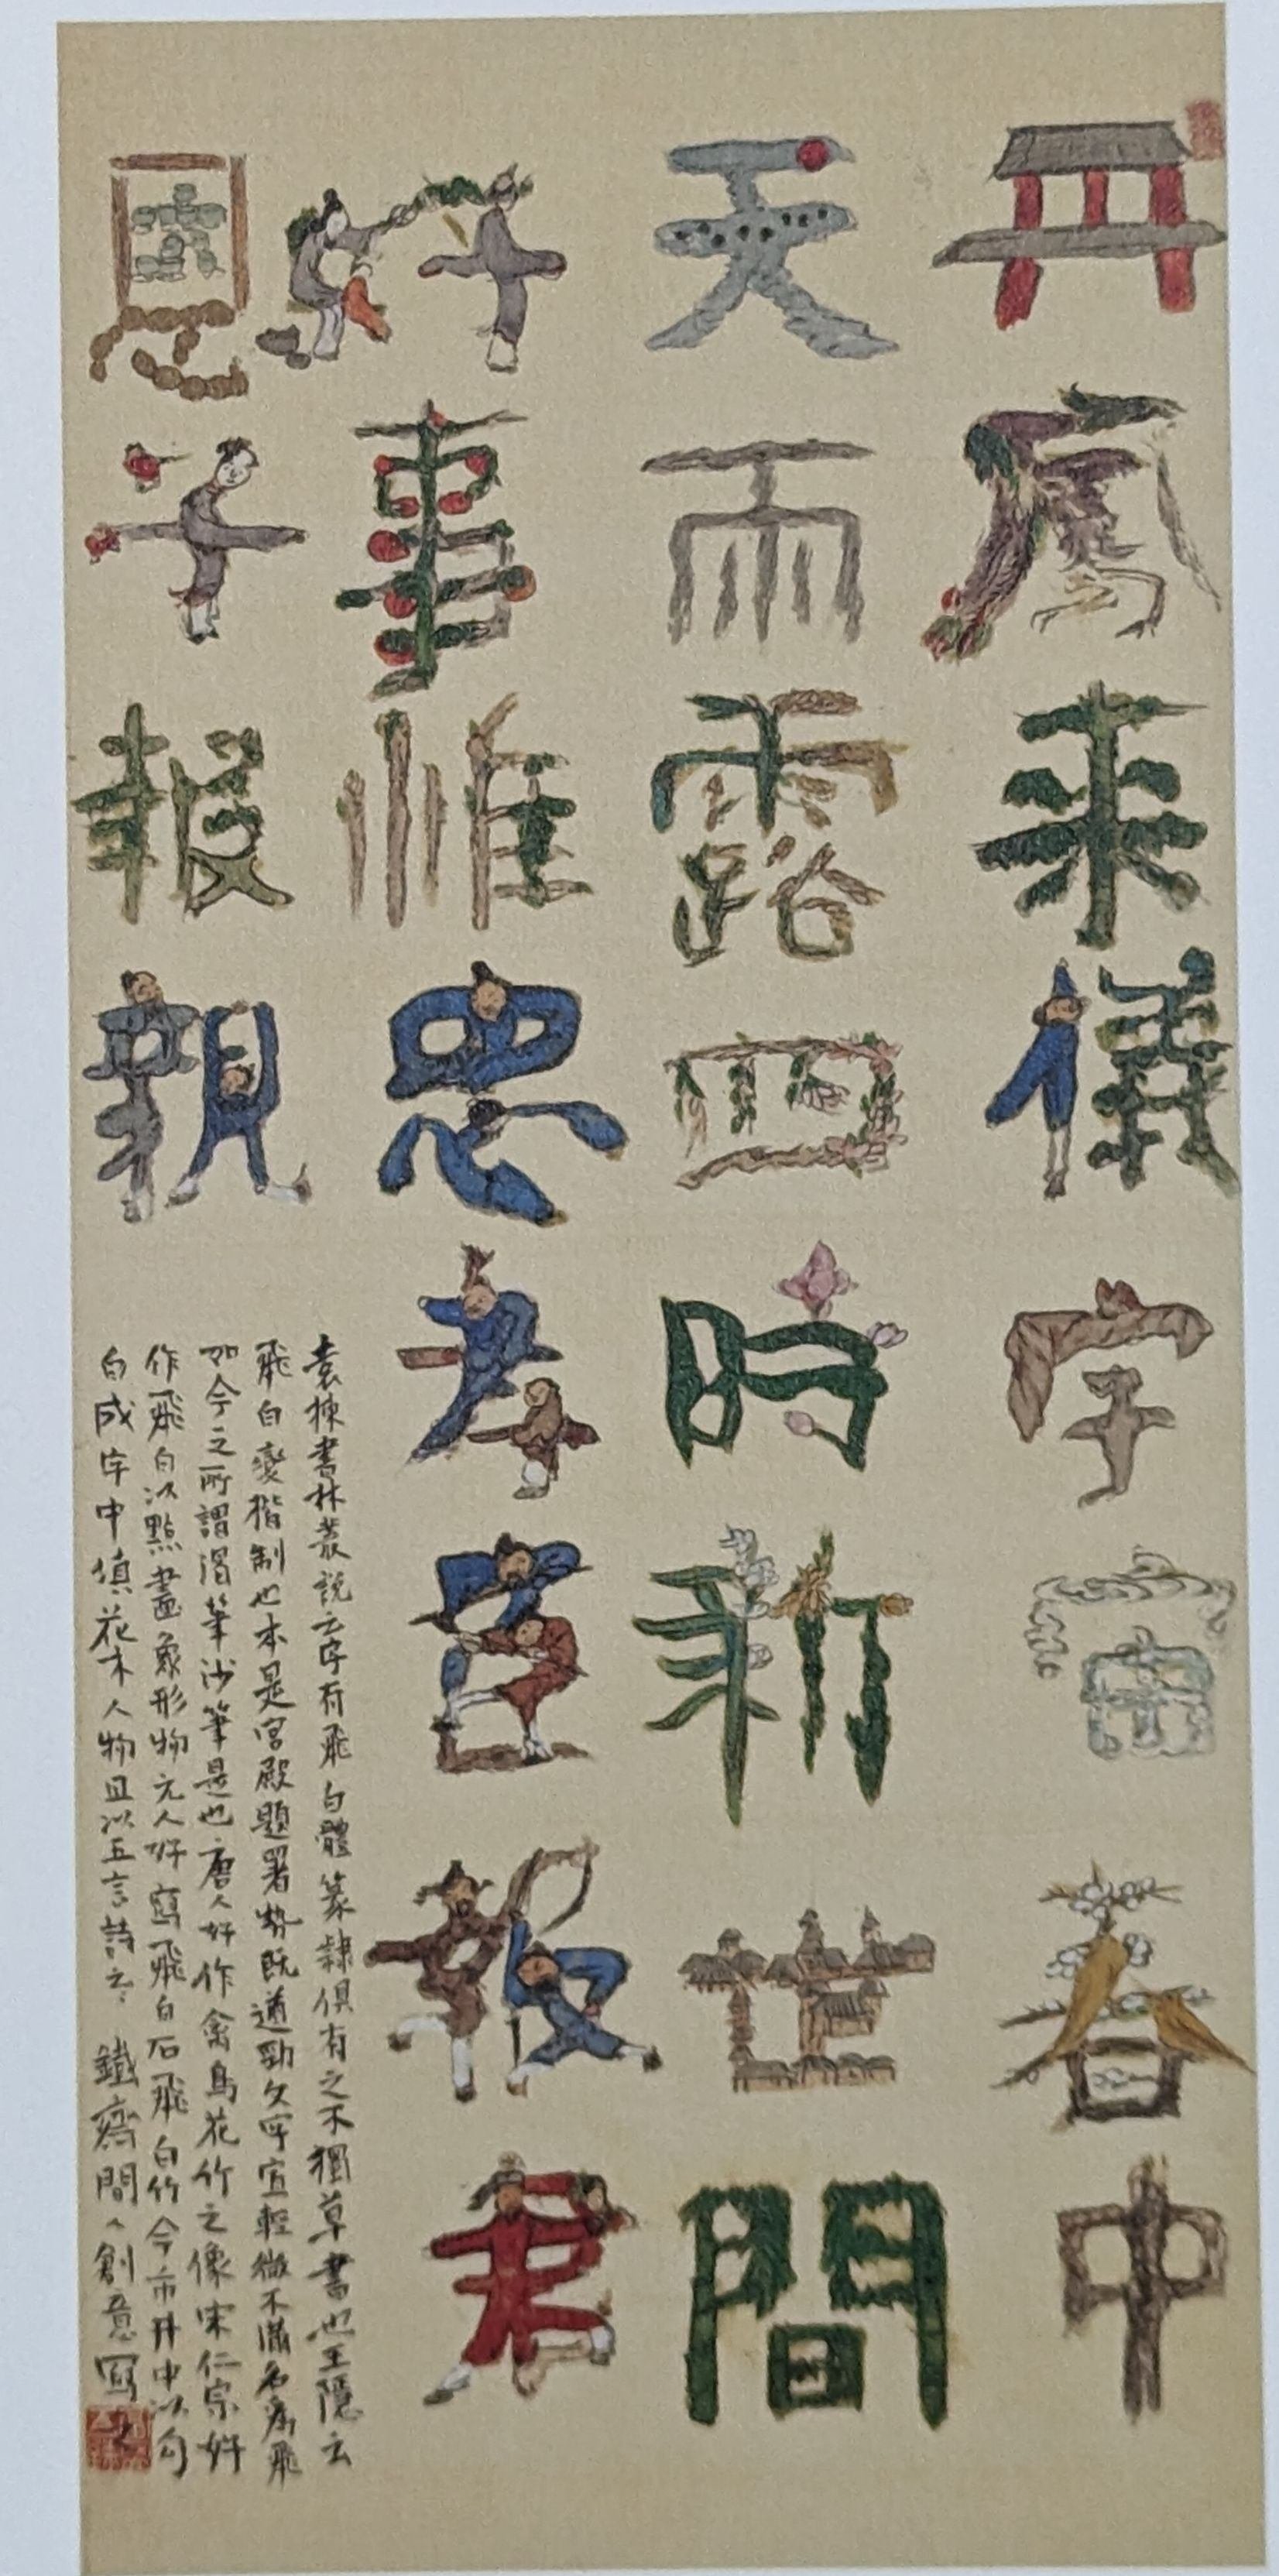 丹鳳来儀宇宙春中
天雨露四時新世間
好事惟忠孝臣報君
恩子報親
袁棟書林叢説云字有飛白體篆隸俱有之不獨草書也王隱云
飛白變楷制也本是宮殿題署勢既遒勁文字宜輕微不滿名為飛
如今之所謂渴筆沙筆是也唐人好作禽鳥花竹之像宋仁宗好
作飛白以點畫象形物元人好寫飛白石飛白竹今市井中以勾
白成字中填花木人物且以五言詩之 鐵齋間人創意寫